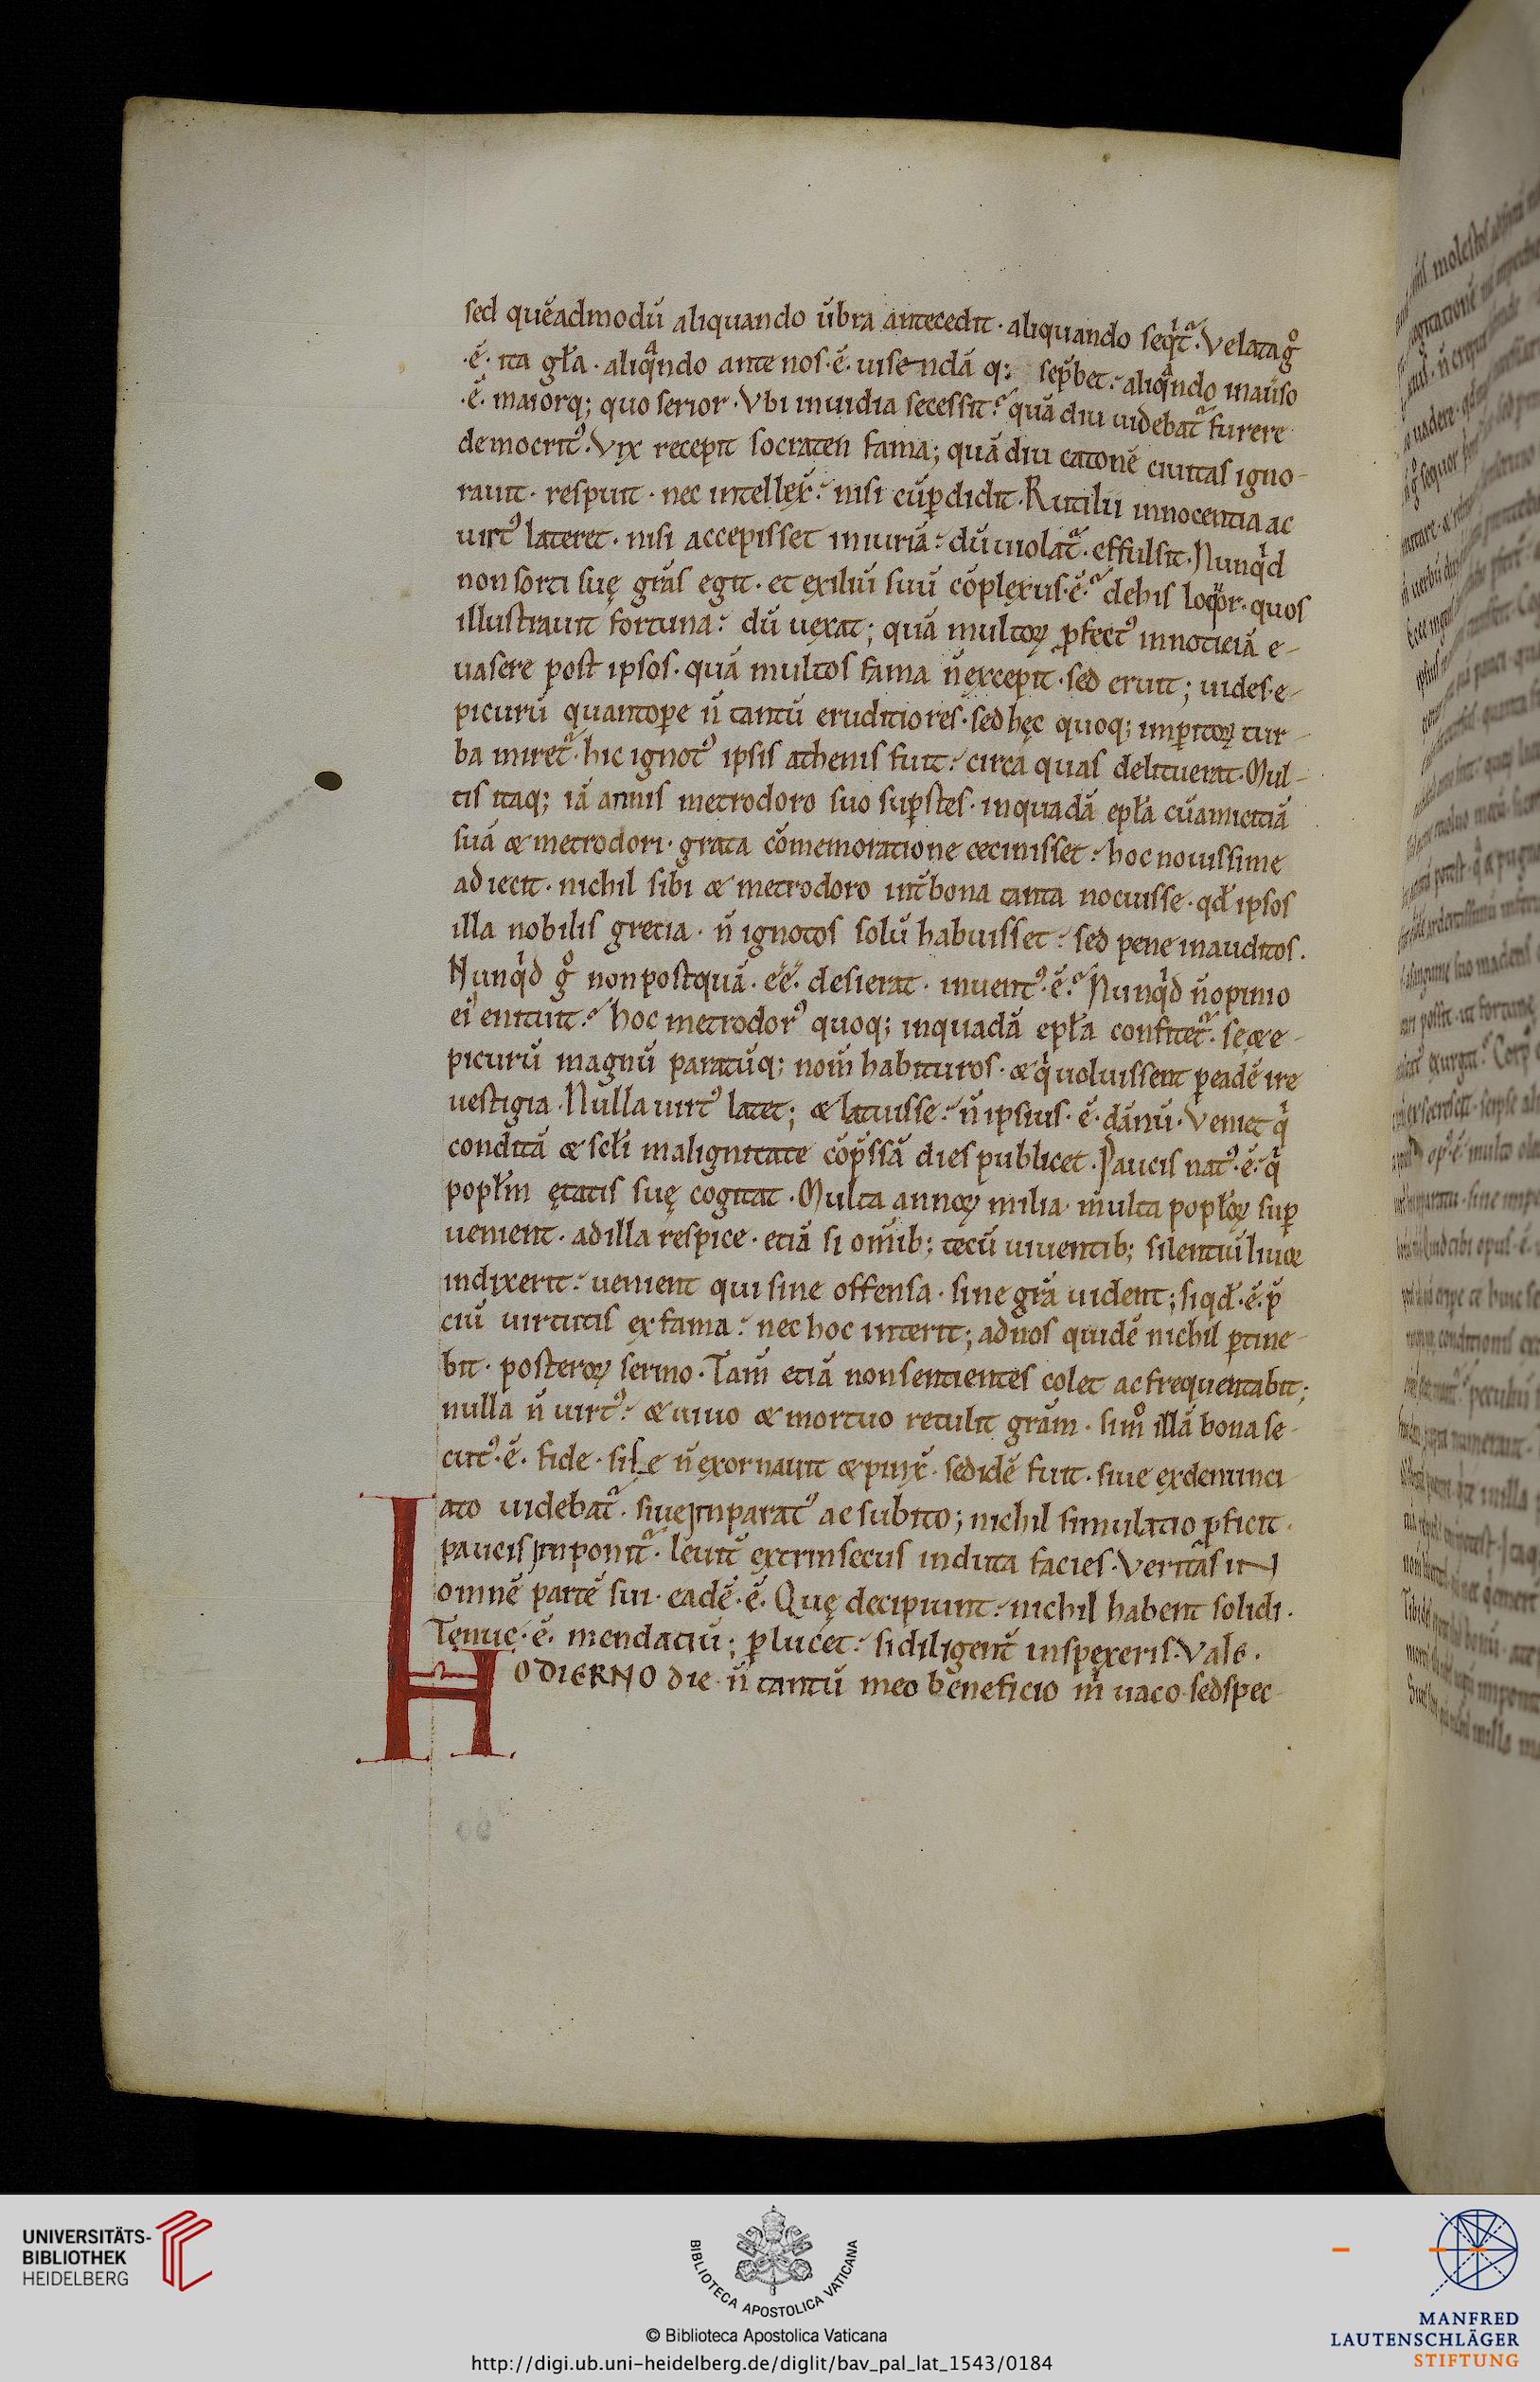 sed quēadmodū aliquando ūbra antecedit · aliquando seqͥtᷓ · Velata gͦ
·ē· ita gła · aliqᷓndo ante nos ·ē· uisendā q; sep̄bet : aliqᷓndo inaūso
·ē· maiorq; quo serior · Vbi inuidia secessit ? quā diu uidebatᷓ furere
democritꝰ · Vix recepit socraten fama ; quā diu catonē ciuitas igno-
rauit · respuit · nec intellex̄ : nisi cūꝑdidit · Rutilii innocentia ac
uirtꝰ lateret · nisi accepisset iniuriā : dū uiolatᷓ · effulsit · Nunqͥd
non sorti suę gr̄as egit · et exiliū suū cōplexus ·ē· ? dehis loqᷓor · quos
illustrauit fortuna : dū uexat ; quā multoꝝ ꝓfectꝰ innoticiā e-
uasere post ipsos · quā multos fama n̄ excepit · sed eruit ; uides · e-
picurū quantoꝑe n̄ tantū eruditiores · sed hęc quoq; imꝑitoꝝ tur-
ba miretᷓ · hic ignotꝰ ipsis athenis fuit : circa quas delituerat · Mul-
tis itaq; iā annis metrodoro suo suꝑstes · inquadā epła cū amicitiā
suā & metrodori · grata cōmemoratione cecinisset : hoc nouissime
adiecit · nichil sibi & metrodoro int̄ bona tanta nocuisse · qd̄ ipsos
illa nobilis grecia · n̄ ignotos solū habuisset : sed pene inauditos .
Nunqͥd gͦ non postquā · eē · desierat · inuentꝰ ·ē· ? Nunqͥd n̄ opinio
eiꝰ enituit ? hoc metrodorꝰ quoq; inquadā epła confitetᷓ · se & e-
picurū magnū paratūq; nom̄ habituros · & qͥ uoluissent ꝑ eadē ire
uestigia · Nulla uirtꝰ latet ; & latuisse : n̄ ipsius · ē · dānū · Veniet qͥ
conditā & scłi malignitate cōp̄ssā dies publicet · Paucis natꝰ ·ē· qͥ
popłm ętatis suę cogitat · Multa annoꝝ milia · multa popłoꝝ suꝑ
uenient · ad illa respice · etiā si om̄ib; tecū uiuentib; silentiū liuor
indixerit : uenient qui sine offensa · sine gr̄a uident ; siqd̄ ·ē· p̄
ciū uirtutis ex fama : nec hoc interit ; ad nos quidē nichil ꝑtine-
bit · posteroꝝ sermo · Tam̄ etiā non sentientes colet ac frequentabit ;
nulla n̄ uirtꝰ : & uiuo & mortuo retulit gr̄am · sim̊ illā bona se-
cutꝰ ·ē· fide · si se n̄ exornauit & pinx̄ · sed idē fuit · siue exdenunci
ato uidebatᷓ · siue inparatꝰ ac subito ; nichil simulatio ꝓficit ·
paucis inponitᷓ · leuit̄ extrinsecus induta facies · Veritas in
omnē partē sui · eadē ·ē· Quę decipiunt : nichil habent solidi ·
Tenue ·ē· mendaciū ; ꝑlucet : si diligent̄ inspexeris · Vale ·
HODIERNO die n̄ tantū meo beneficio m̄ uaco · sed spec-
UNIVERSITÄTS-
BIBLIOTHEK
HEIDELBERG
BIBLIOTECA APOSTOLICA VATICANA
© Biblioteca Apostolica Vaticana
http://digi.ub.uni-heidelberg.de/diglit/bav_pal_lat_1543/0184
MANFRED
LAUTENSCHLÄGER
STIFTUNG